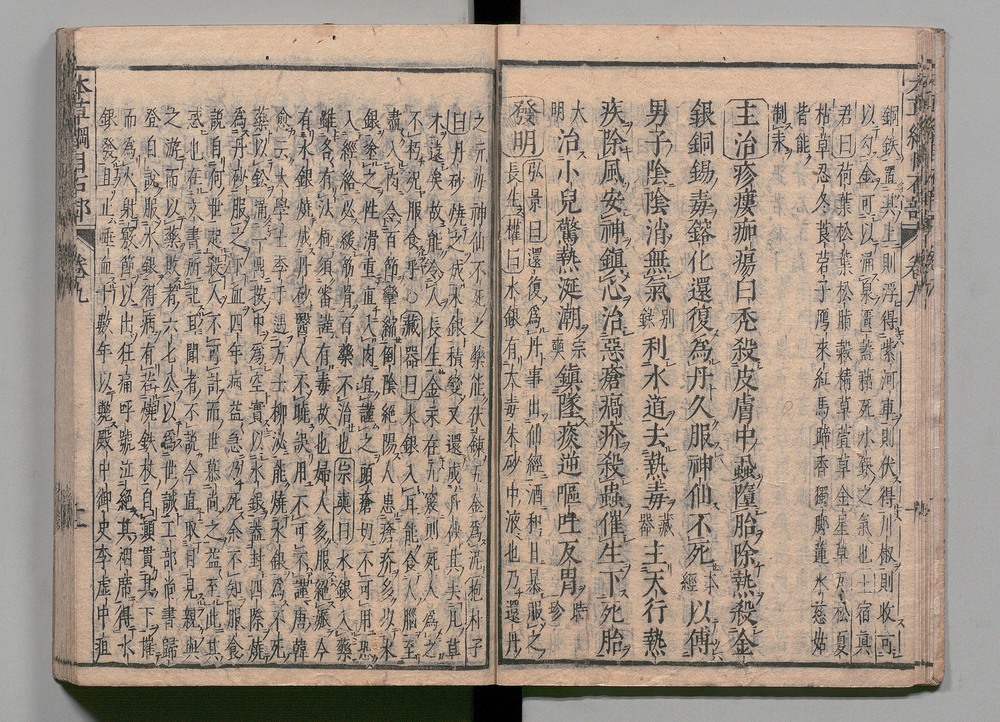 銅鐵置其上則浮得紫河車則伏得川椒則收可
以勾金可以涌泉匱蓋藉死水銀之氣也土宿真
君曰荷葉松葉松脂穀精草萱草金星草瓦松夏
枯草忍冬莨菪子鴈來紅馬蹄香獨脚蓮水慈姑
皆能
制汞
主治疹瘻痂瘍白禿殺皮膚中蟲墮胎除熱殺金
銀銅錫毒鎔化還復為丹久服神仙不死本經以傅
男子陰陰消無氣別錄利水道去熱毒藏器主天行熱
疾除風安神鎮心治惡瘡瘑疥殺蟲催生下死胎
大明治小兒驚熱涎潮宗奭鎮墜痰逆嘔吐反胃時珍
發明弘景曰還復為丹事出仙經酒和日暴服之
長生權曰水銀有大毒朱砂中液也乃還丹
之元母神仙不死之藥能伏鍊五金為泥抱朴子
曰丹砂燒之成水銀積變又還成丹砂其去凡草
木遠矣故能令人長生金汞在九竅則死人為之
不朽況服食乎藏器曰水銀入耳能食人腦至
盡入肉令百節攣縮倒陰絕陽人患瘡疥多以水
銀塗之性滑重直入肉宜謹之頭瘡切不可用恐
入經絡必緩筋骨百藥不治也宗奭曰水銀入藥
雖各有法極須審謹有毒故也婦人多服絕娠今
有水銀燒成丹砂醫人不曉誤用不可不謹唐韓
愈云太學士李于遇方士柳泌能燒水銀為不死
藥以鉛滿一鼎按中為空實以水銀蓋封四際燒
為丹砂服之下血四年病益急乃死余不知服食
說自何世起殺人不可計而世慕尚之益至此其
惑也在文書所記及耳聞者不說今直取目見親與
之游而以藥敗者六七公以為世誡工部尚書歸
登自說服水銀得病有若燒鐵杖自顛貫其下摧
而為火射竅節以出狂痛呼號泣絕其裀席得水
銀發且止唾血十數年以斃殿中御史李虛中疽
本草綱目石部 卷九 十一